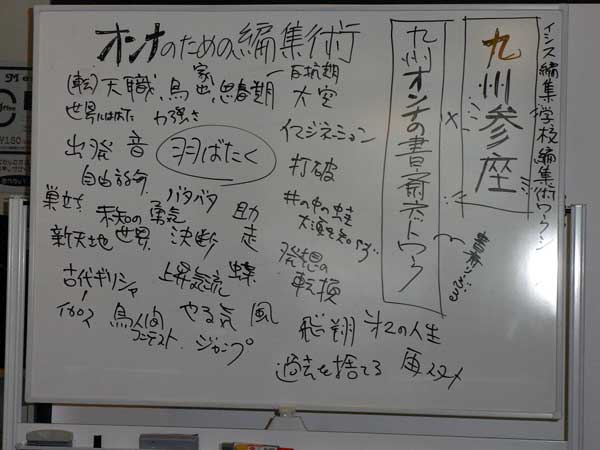 イシス編集学校編集術ワークショ
九州参座
×
九州オンナの書斎ネットワーク
オンナのための編集術
(転)天職 鳥 家出 思春期 ー 反抗期
世界にはばたく 力強さ 大空
出発 音 羽ばたく イマジネーション
自由 バタバタ 打破
巣立ち 未知の世界 勇気 助走 井の中の蛙
大海を知らず
新天地 決断 発想の転換
古代ギリシャ 上昇気流 蝶
イカロス 鳥人間コンテスト やる気 風
ジャンプ 飛翔 第2の人生
過去を捨てる 再スタート